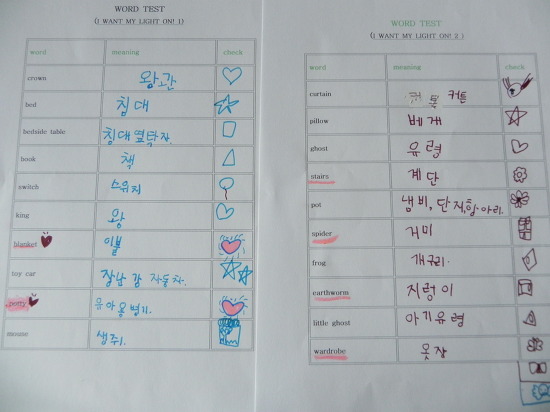 WORD TEST
(I WANT MY LIGHT ON! 1)
word meaning check
crown 왕관
bed 침대
bedside table 침대옆탁자.
book 책
switch 스위치
king 왕
blanket 이불
toy car 장난감 자동차.
potty 유아용 변기.
mouse 생쥐.
WORD TEST
(I WANT MY LIGHT ON! 2 )
word meaning check
curtain 커튼
pillow 베게
ghost 유령
stairs 계단
pot 냄비, 단지, 항아리.
spider 거미
frog 개구리.
earthworm 지렁이
little ghost 아기유령
wardrobe 옷장